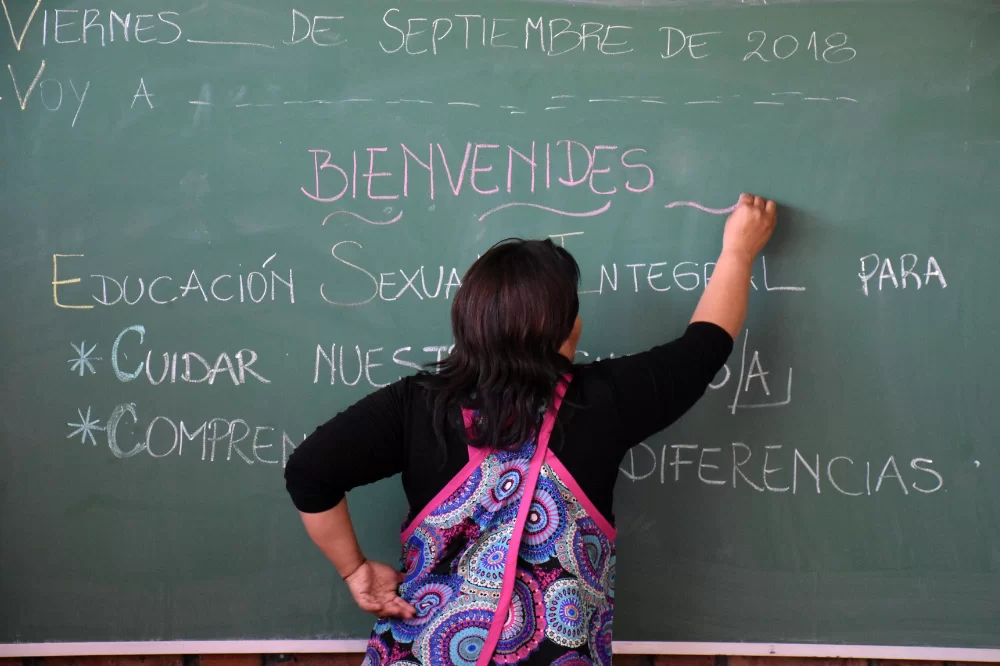 VIERNES ___ DE SEPTIEMBRE DE 2018
VOY A
BIENVENIDES
EDUCACIÓN SEXUAL INTEGRAL PARA
* CUIDAR
* DIFERENCIAS.